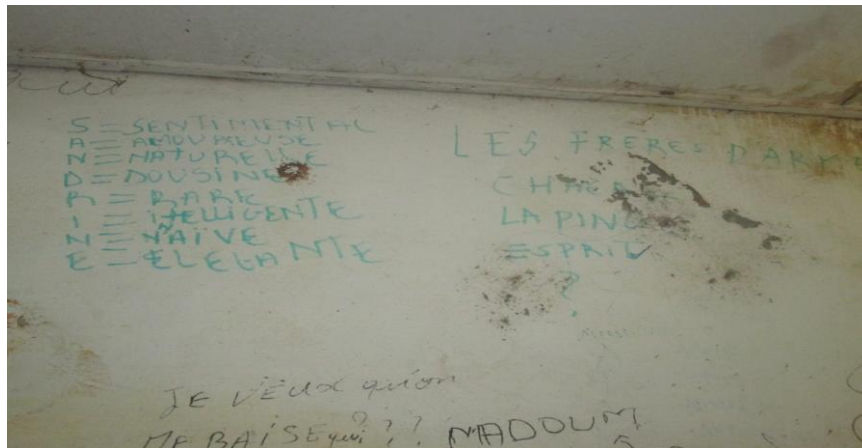 S = SENTIMENTAL
A = AMOUREUSE
N = NATURELLE
D = DOUSINE
R = RARE
I = ITELLIGENTE
N = NAÏVE
E = ELEGANTE
LES FRERES
LA PINO
ESPRIT
?
JE VEUX qu'on
ME BAISE qui ? ? ? MADOUM